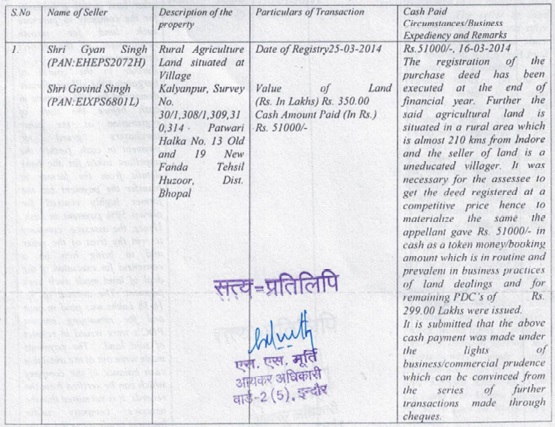 S.No Name of Seller Description of the property Particulars of Transaction Cash Paid Circumstances/Business Expediency and Remarks
1.
Shri Gyan Singh
(PAN:EHEPS2072H)
Shri Govind Singh
(PAN:EIXPS6801L)
Rural Agriculture
Land situated at
Village
Kalyanpur, Survey
No.
30/1,308/1,309,31
0,314 Patwari
Halka No. 13 Old
and 19 New
Fanda Tehsil
Huzoor, Dist.
Bhopal
Date of Registry25-03-2014
Value of Land
(Rs. In Lakhs) Rs. 350.00
Cash Amount Paid (In Rs.)
Rs. 51000/-
Rs.51000/-, 16-03-2014
The registration of the
purchase deed has been
executed at the end of
financial year. Further the
said agricultural land is
situated in a rural area which
is almost 210 kms from Indore
and the seller of land is a
uneducated villager. It was
necessary for the assessee to
get the deed registered at a
competitive price hence to
materialize the same the
appellant gave Rs. 51000/- in
cash as a token money/booking
amount which is in routine and
prevalent in business practices
of land dealings and for
remaining PDC's of Rs.
299.00 Lakhs were issued.
It is submitted that the above
cash payment was made under
the lights of
business/commercial prudence
which can be convinced from
the series of further
transactions made through
cheques.
सत्य-प्रतिलिपि
एस. एस. मूर्ति
आयकर अधिकारी
वार्ड-2 (5), इन्दौर